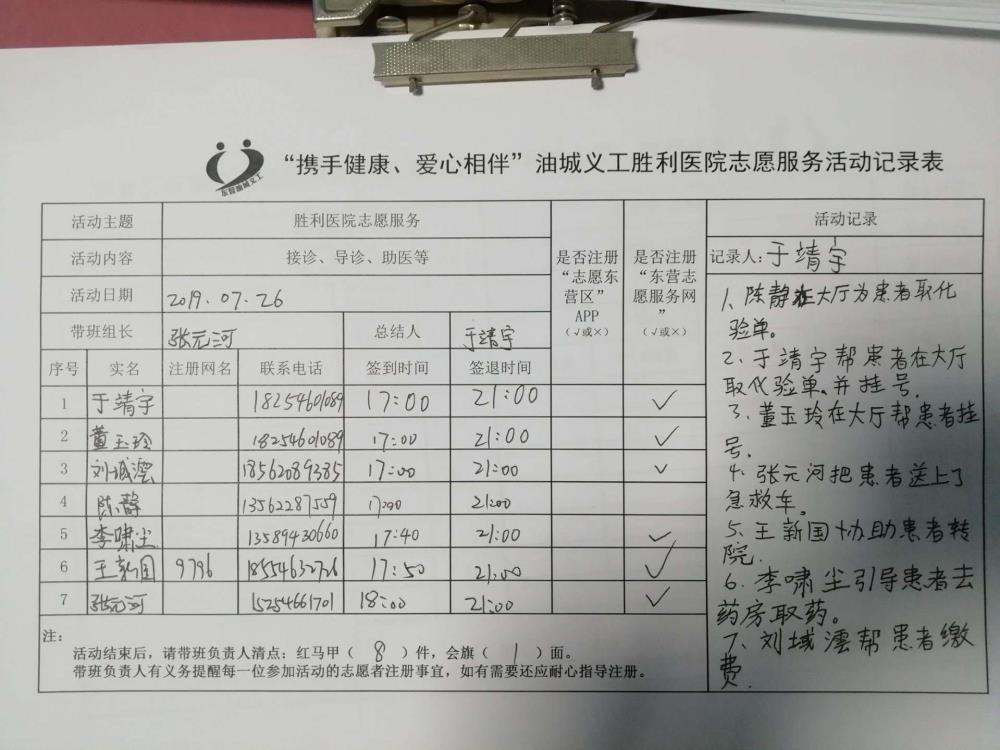 东营油城义工
“携手健康、爱心相伴”油城义工胜利医院志愿服务活动记录表
活动主题 胜利医院志愿服务
活动内容 接诊、导诊、助医等
活动日期 2019.07.26
带班组长 张元河 总结人 于靖宇
是否注册
“志愿东
营区”
APP
(√或×)
是否注册
“东营志
愿服务网
”
(√或×)
序号 实名 注册网名 联系电话 签到时间 签退时间
1 于靖宇 18254601089 17:00 21:00 ✓
2 董玉玲 18254601089 17:00 21:00 ✓
3 刘域澐 18562089385 17:00 21:00 ✓
4 陈静 13562287559 17:00 21:00
5 李啸尘 13589430660 17:40 21:00 ✓
6 王新国 9796 18554632726 17:50 21:00 ✓
7 张元河 15254661701 18:00 21:00 ✓
注:
活动结束后，请带班负责人清点：红马甲（ 8 ）件，会旗（ 1 ）面。
带班负责人有义务提醒每一位参加活动的志愿者注册事宜，如有需要还应耐心指导注册。
活动记录
记录人:于靖宇
1、陈静在大厅为患者取化
验单。
2、于靖宇帮患者在大厅
取化验单、并挂号.
3、董玉玲在大厅帮患者挂
号.
4、张元河把患者送上了
急救车.
5、王新国协助患者转
院.
6、李啸尘引导患者去
药房取药。
7、刘域澐帮患者缴
费.